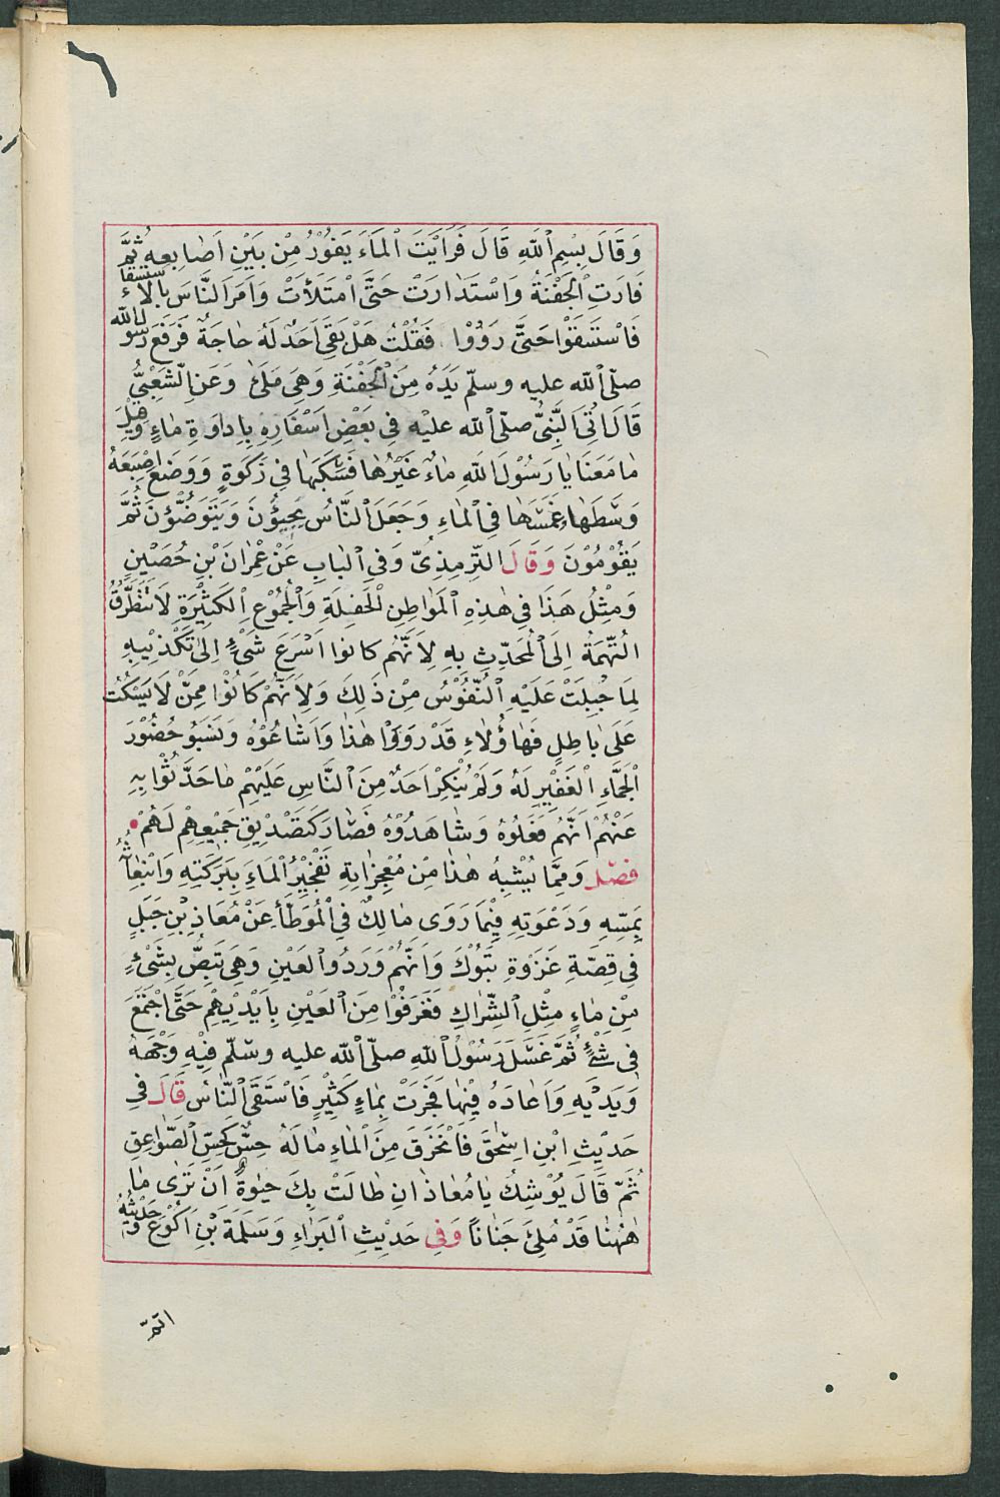 وَقَالَ بِسْمِ اللّٰهِ قَالَ فَرَاَيْتَ الْمَآءَ يَفُوْرُ مِنْ بَيْنِ اَصَابِعِهِ ثُمَّ
فَارَتِ الْجَفْنَةُ وَاسْتَدَارَتْ حَتَّى امْتَلَأَتْ وَاَمَرَ النَّاسَ بِالاستسقاء
فَاسْتَسْقَوْا حَتَّى رَوُوْا فَقُلْتُ هَلْ بَقِىَ اَحَدٌ لَهُ حَاجَةٌ فَرَفَعَ رسول الله
صلّى الله عليه وسلّم يَدَهُ مِنَ الْجَفْنَةِ وَهِىَ مَلْئٰ وَعَنِ الشَّعْبِىُّ
قَالَ اُتِىَ النَّبِىُّ صلّى الله عليْه فِى بَعْضِ اَسْفَارِهِ بِاِدَاوَةِ مَاءٍ وَقِيْلَ
مَا مَعَنَا يَا رَسُوْلَ اللّٰهِ مَاءٌ غَيْرُهَا فَسَكَبَهَا فِى رَكْوَةٍ وَوَضَعَ اِصْبَعَهُ
وَسَّطَهَا وَغَمَسَهَا فِى الْمَاءِ وَجَعَلَ النَّاسُ يَجِيؤُنَ وَيَتَوَضَّؤُنَ ثُمَّ
يَقُوْمُوْنَ وَقَالَ التِّرْمِذِىّ وَفِى الْبَابِ عَنْ عِمْرَانَ بْنِ حُصَيْنٍ
وَمِثْلُ هَذَا فِى هٰذِهِ الْمَوَاطِنِ الْحَفِلَةِ وَالْجُمُوْعِ الْكَثِيْرَةِ لَا تَتَطَرَّقُ
التُّهَمَةُ اِلَى الْمُحَدِّثِ بِهِ لِاَنَّهُم كانوا اَسْرَعَ شَىْءٍ اِلٰى تَكْذِيْبِهِ
لِمَا جُبِلَتْ عَلَيْهِ النُّفُوْسُ مِنْ ذٰلِكَ وَلِاَنَّهُمْ كَانُوْا مِمَّنْ لَا يَسْكُتُ
عَلَى بَاطِلٍ فَهَاؤُلَاءِ قَدْ رَوَوْا هٰذَا وَاَشَاعُوْهُ وَنَسَبُو حُضُوْرَ
الْجَمَّاءِ الْغَفِيْرِ لَهُ وَلَمْ يُنْكِرْ اَحَدٌ مِنَ النَّاسِ عَلَيْهِمْ مَا حَدَّثُوْا بِهِ
عَنْهُمْ اَنَّهُم فَعَلُوْهُ وَشَاهَدُوْهُ فَصَارَ كَتَصْدِيْقِ جَمِيْعِهِمْ لَهُمْ
فَصْل وَمِمَّا يُشْبِهُ هٰذَا مِنْ مُعْجِزَاتِهِ تَفْجِيْرُ الْمَاءِ بِبَرَكَتِهِ وَانْبِعَاثُهُ
بِمَسِّهِ وَدَعْوَتِهِ فِيْمَا رَوَى مَالِكٌ فِى الْمُوَطَّأ عَنْ مُعَاذِ بْنِ جَبَلٍ
فِى قِصَّةِ غَزْوَةِ تَبُوْكَ وَاَنَّهُمْ وَرَدُوا الْعَيْنِ وَهِىَ تَبِصُّ بِشَىْءٍ
مِنْ مَاءٍ مِثْلِ الشِّرَاكِ فَغَرَفُوْا مِنَ الْعَيْنِ بِاَيْدِيْهِمْ حَتَّى اجْتَمَعَ
فِى شَىْءٍ ثُمَّ غَسَلَ رَسُوْلُ اللّٰهِ صلّى الله عليه وسَلّم فِيْهِ وَجْهَهُ
وَيَدَيْهِ وَاَعَادَهُ فِيْهَا فَجَرَتْ بِمَاءٍ كَثِيْرٍ فَاسْتَقَى النَّاسُ قَالَ فِى
حَدِيْثِ ابْنِ اسْحٰقَ فَانْخَرَقَ مِنَ الْمَاءِ مَا لَهُ حِسٌّ كَحِسِّ الصَّوَاعِقِ
ثُمَّ قَالَ يُوْشِكُ يَا مُعَاذُ اِنِ طَالَتْ بِكَ حَيٰوةٌ اَنْ تَرٰى مَا
هٰهُنَا قَدْ مُلِئَ جَنَانًا وَفِى حَدِيْثِ الْبَرَاءِ وَسَلَمَةَ بْنِ اَكْوَعَ وَحَدِيْثُهُ
اتمّ